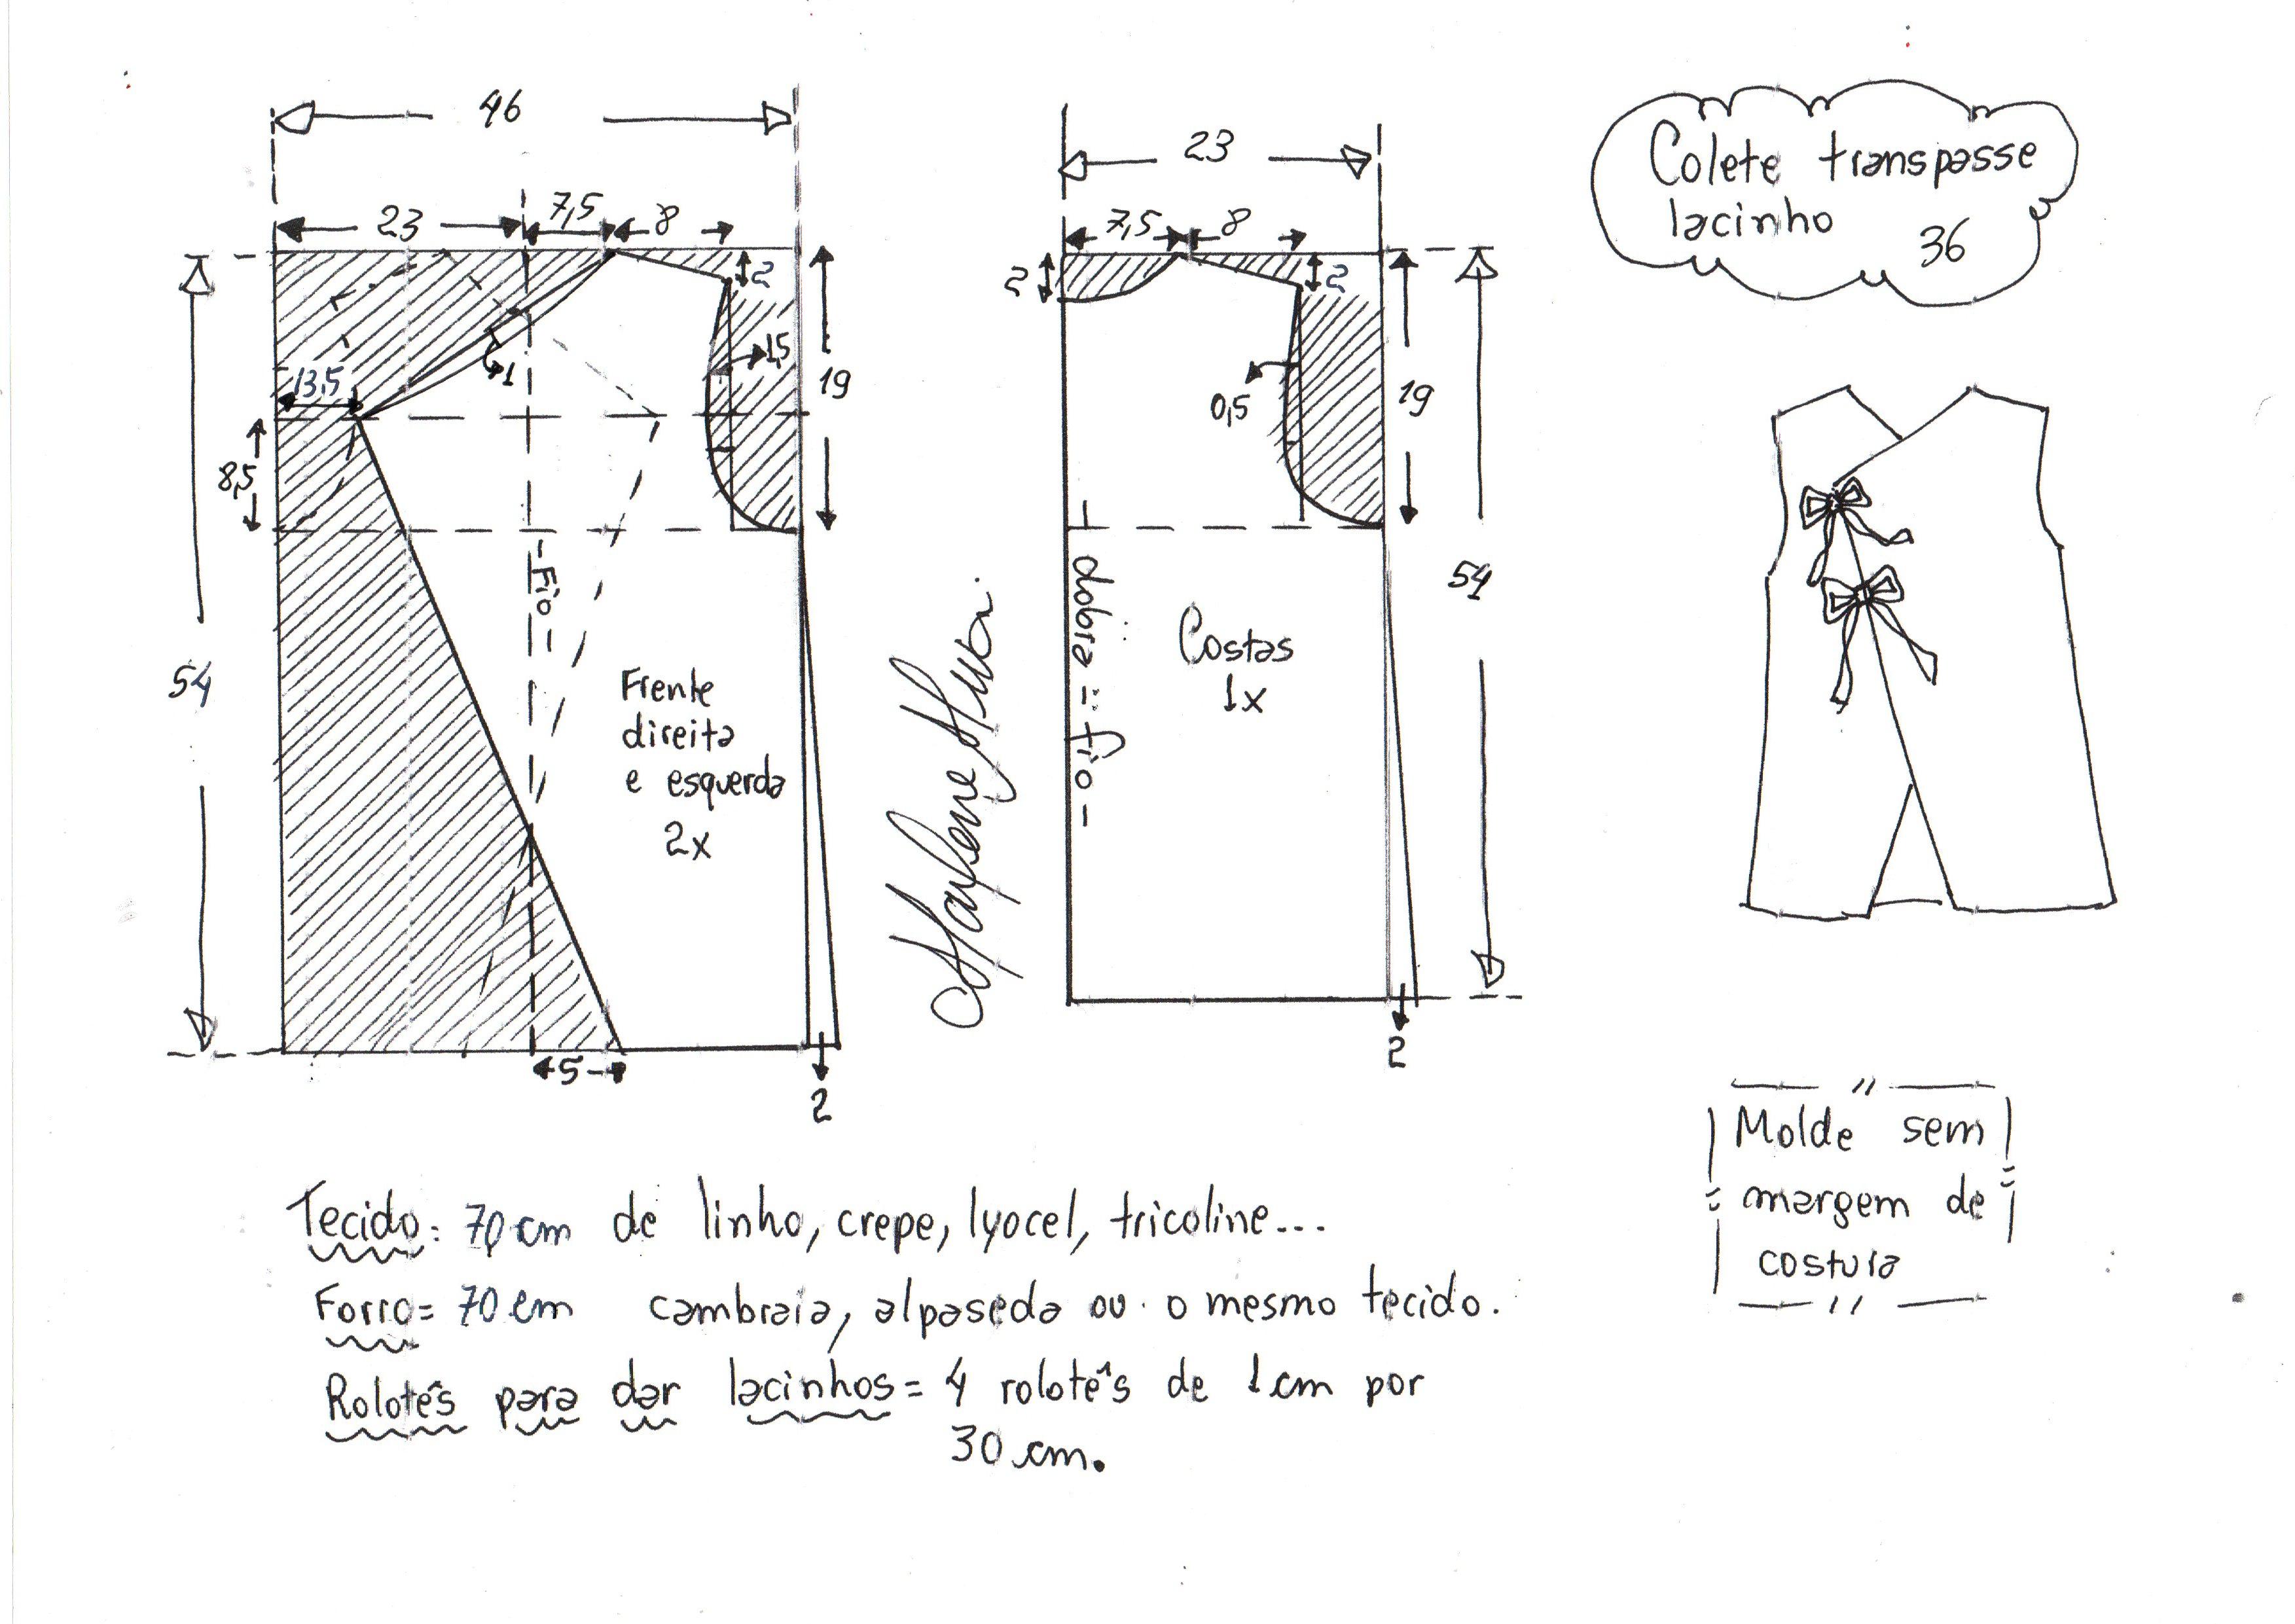 46
23
7,5
8
2
1,5
19
1
13,5
8,5
54
- Fio -
Frente
direita
e esquerda
2x
5
2
23
7,5
8
2
2
0,5
19
54
dobra = fio -
Costas
1x
2
Colete transpasse
lacinho 36
Molde sem
margem de
costura
Tecido: 70 cm de linho, crepe, lyocel, tricoline...
Forro= 70 cm cambraia, alpaseda ou o mesmo tecido.
Rolotês para dar lacinhos = 4 rolotês de 1 cm por
30 cm.